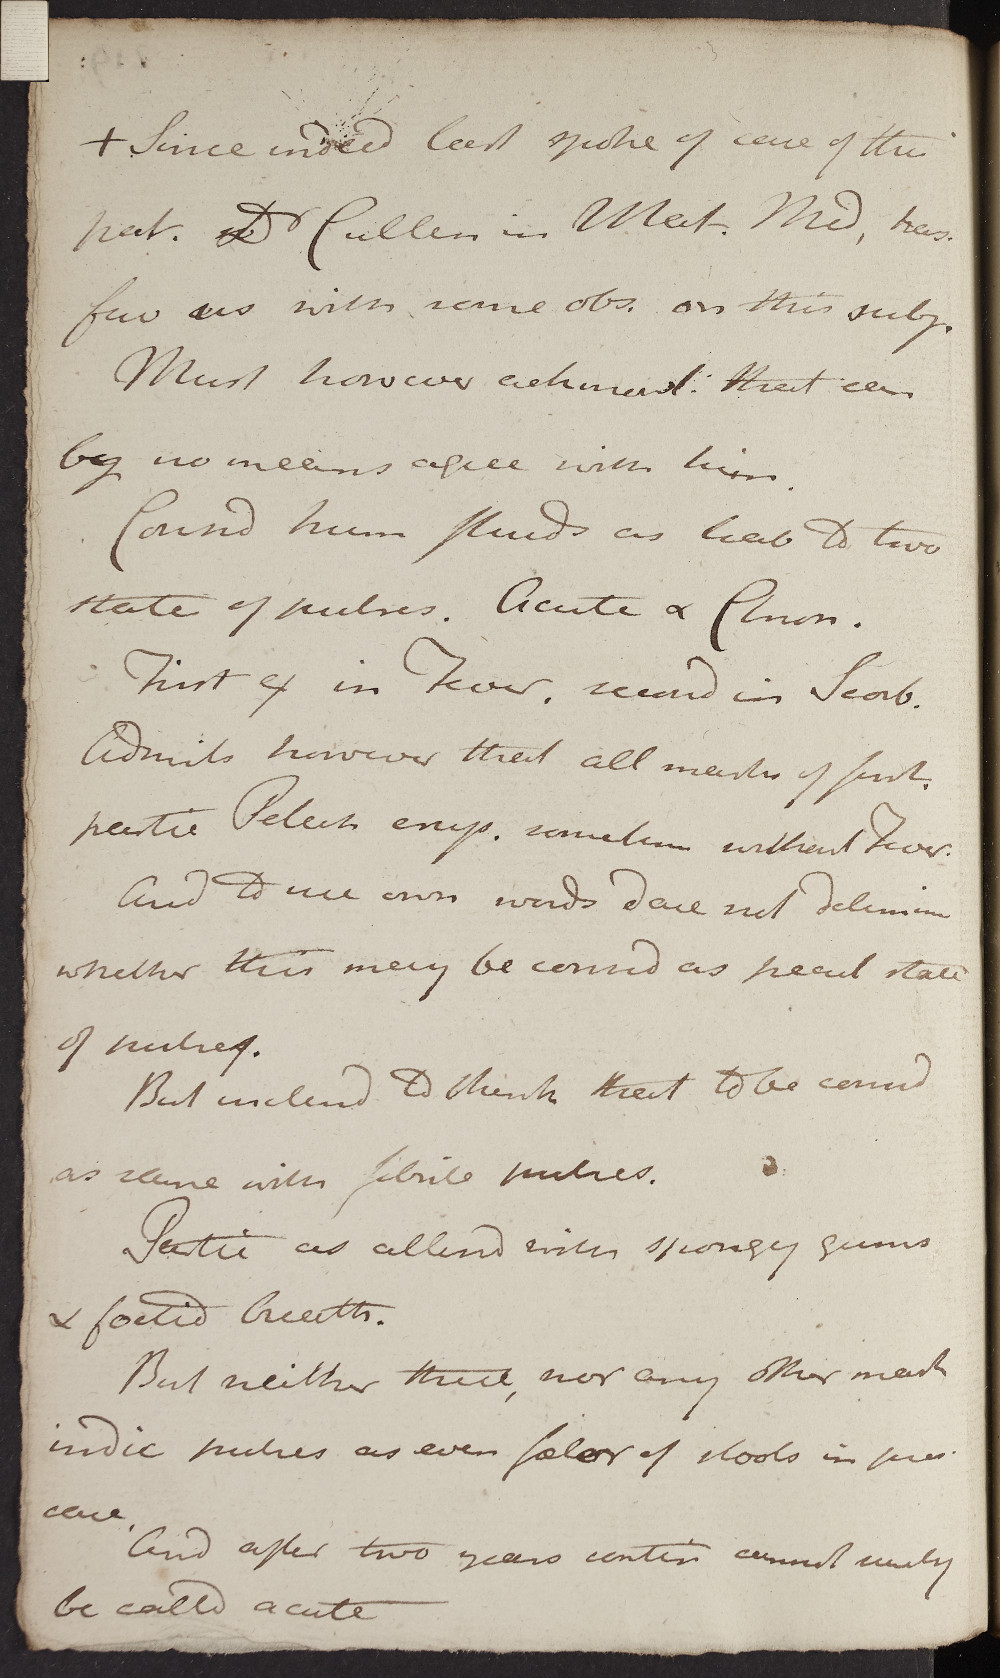 + Since indeed last spoke of case of this
pat. Dr Cullen in Mat. Med, has
fav us with some obs. on this subj.
Must however acknowl: that can
by no means agree with him.
Consid hum fluids as liab to two
state of putres. Acute & Chron.
First ex in Fever, second in Scorb.
Admits however that all marks of first,
partic Petech erup. sometim without Fever.
And to use own words dare not determin
whether this may be consid as pecul state
of putresc.
But inclind to think that to be consid
as same with febrile putres.
Partic as attend with spongy gums
& foetid breath.
But neither these, nor any other mark
indic putres as even fœtor of stools in pres
case.
And after two years contin cannot surely
be calld acute